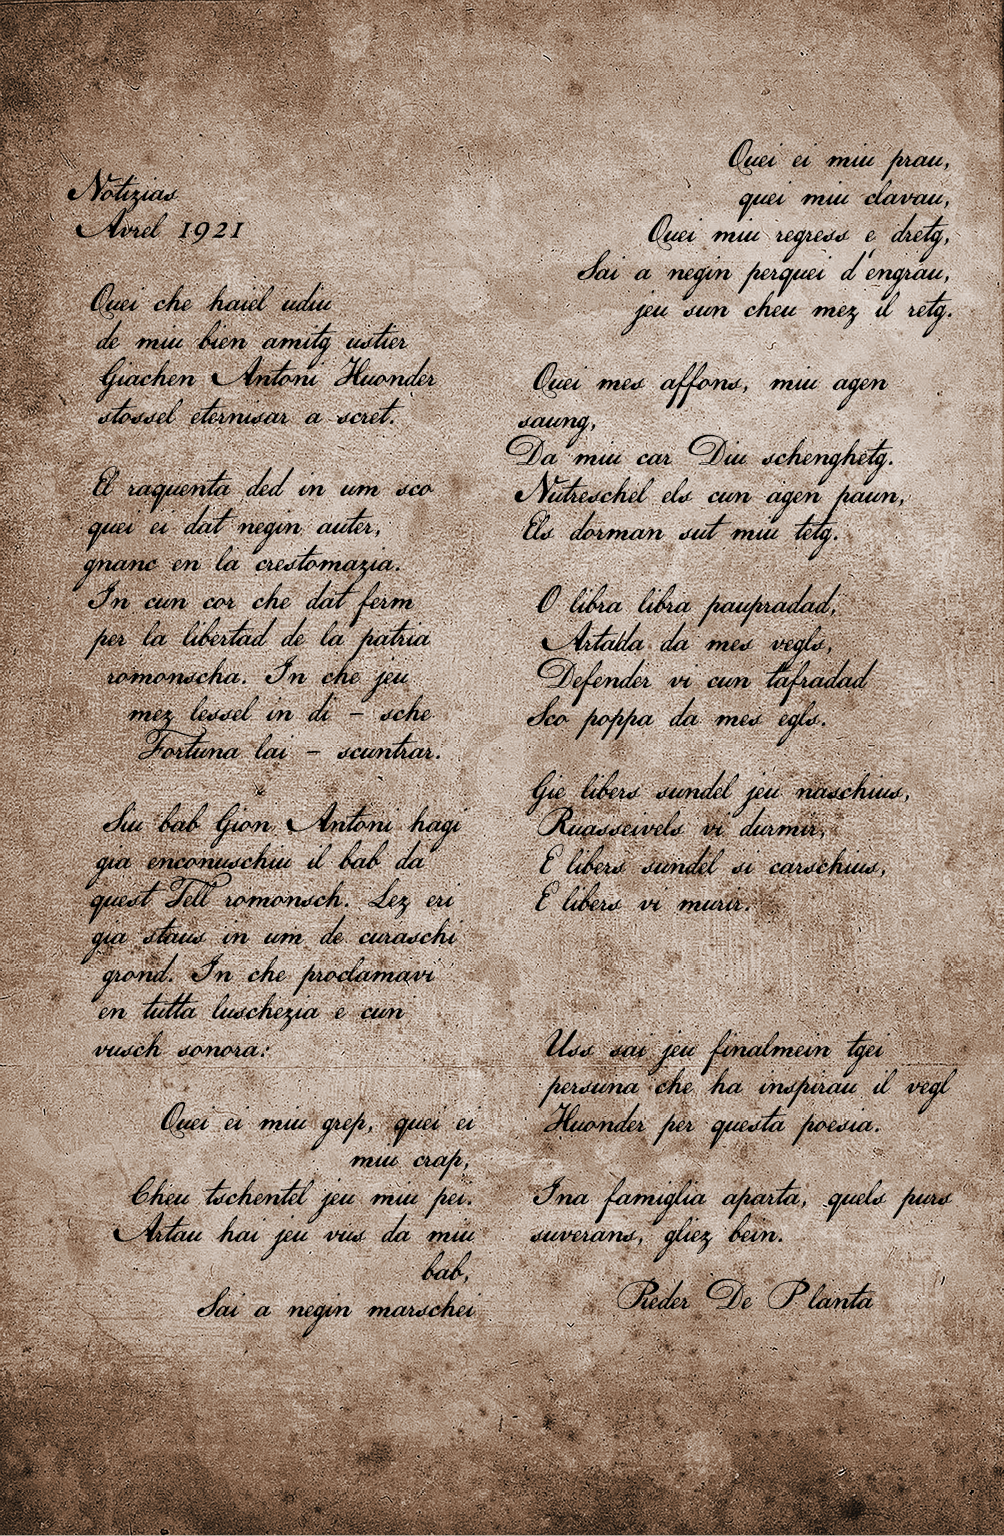 Notizias
Avrel 1921
Quei che haiel udiu
de miu bien amitg ustier
Giachen Antoni Huonder
stossel eternisar a scret.
El raquenta ded in um sco
quei ei dat negin auter,
gnanc en la crestomazia.
In cun cor che dat ferm
per la libertad de la patria
romonscha. In che jeu
mez lessel in di - sche
Fortuna lai - scuntrar.
Siu bab Gion Antoni hagi
gia enconuschiu il bab da
quest Tell romonsch. Lez eri
gia staus in um de curaschi
grond. In che proclamavi
en tutta luschezia e cun
vusch sonora:
Quei ei miu grep, quei ei
miu crap,
Cheu tschentel jeu miu pei.
Artau hai jeu vus da miu
bab,
Sai a negin marschei
Quei ei miu prau,
quei miu clavau,
Quei miu regress e dretg,
Sai a negin perquei d'engrau,
jeu sun cheu mez il retg.
Quei mes affons, miu agen
saung,
Da miu car Diu schenghetg.
Nutreschel els cun agen paun,
Els dorman sut miu tetg.
O libra libra paupradad,
Artada da mes vegls,
Defender vi cun tafradad
Sco poppa da mes egls.
Gie libers sundel jeu naschius,
Ruasseivels vi durmir,
E libers sundel si carschius,
E libers vi murir.
Uss sai jeu finalmein tgei
persuna che ha inspirau il vegl
Huonder per questa poesia.
Ina famiglia aparta, quels purs
suverans, gliez bein.
Pieder De Planta